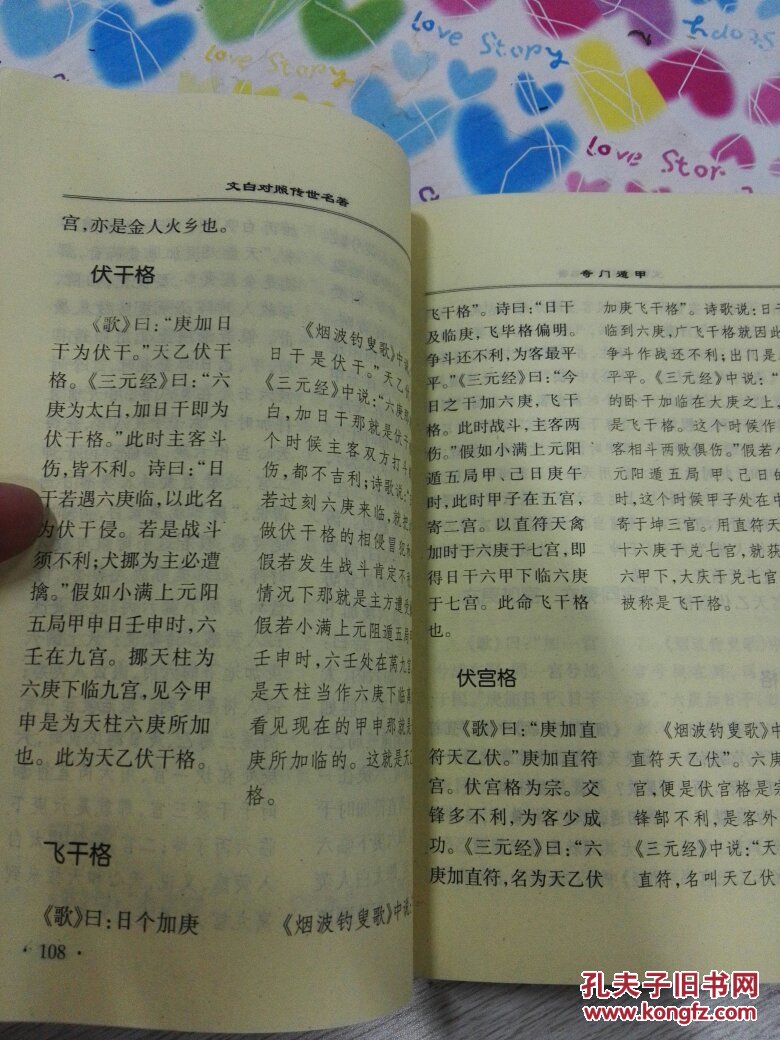 Love Story
Love Story
Love Story
文白对照传世名著
宫,亦是金人火乡也。
伏干格
《歌》曰:“庚加日
干为伏干。”天乙伏干
格。《三元经》曰:“六
庚为太白,加日干即为
伏干格。”此时主客斗
伤,皆不利。诗曰:“日
干若遇六庚临,以此名
为伏干侵。若是战斗
须不利;犬挪为主必遭
擒。”假如小满上元阳
五局甲申日壬申时,六
壬在九宫。挪天柱为
六庚下临九宫,见今甲
申是为天柱六庚所加
也。此为天乙伏干格。
《烟波钓叟歌》中说
日干是伏干。”天乙伏
《三元经》中说:“六庚
白,加日干那就是伏干
个时候主客双方打斗
伤,都不吉利;诗歌说:
若过刻六庚来临,就
做伏干格的相侵冒犯
假若发生战斗肯定不
情况下那就是主方遭
假若小满上元阻遁五局
壬申时,六壬处在离九
是天柱当作六庚下临
看见现在的甲申那就是
庚所加临的。这就是天
格。
飞干格
《歌》曰:日个加庚
《烟波钓叟歌》中说
· 108 ·
奇门遁甲
飞干格”。诗曰:“日干
及临庚,飞毕格偏明。
争斗还不利,为客最平
平。”《三元经》曰:“今
日之干加六庚,飞干
格。此时战斗,主客两
伤。”假如小满上元阳
遁五局甲、己日庚午
时,此时甲子在五宫,
寄二宫。以直符天禽
加时于六庚于七宫,即
得日干六甲下临六庚
于七宫。此命飞干格
也。
加庚飞干格”。诗歌说:日干
临到六庚,广飞干格就因此
争斗作战还不利;出门是
平平。《三元经》中说:“
的卧干加临在大庚之上,
是飞干格。这个时候作
客相斗两败俱伤。”假若
元阳遁五局 甲、己日的
时,这个时候甲子处在中
寄于坤三宫。用直符天
十六庚干兑七宫,就获
六甲下,大庆干兑七宫
被称是飞干格。
伏宫格
《歌》曰:“庚加直
符天乙伏。”庚加直符
宫。伏宫格为宗。交
锋多不利,为客少成
功。《三元经》曰:“六
庚加直符,名为天乙伏
《烟波钓叟歌》中
直符天乙伏”。六庚
官,便是伏宫格是宗
锋郜不利,是客外
《三元经》中说:“天
直符,名叫天乙伏
孔夫子旧书网
www.kongfz.com